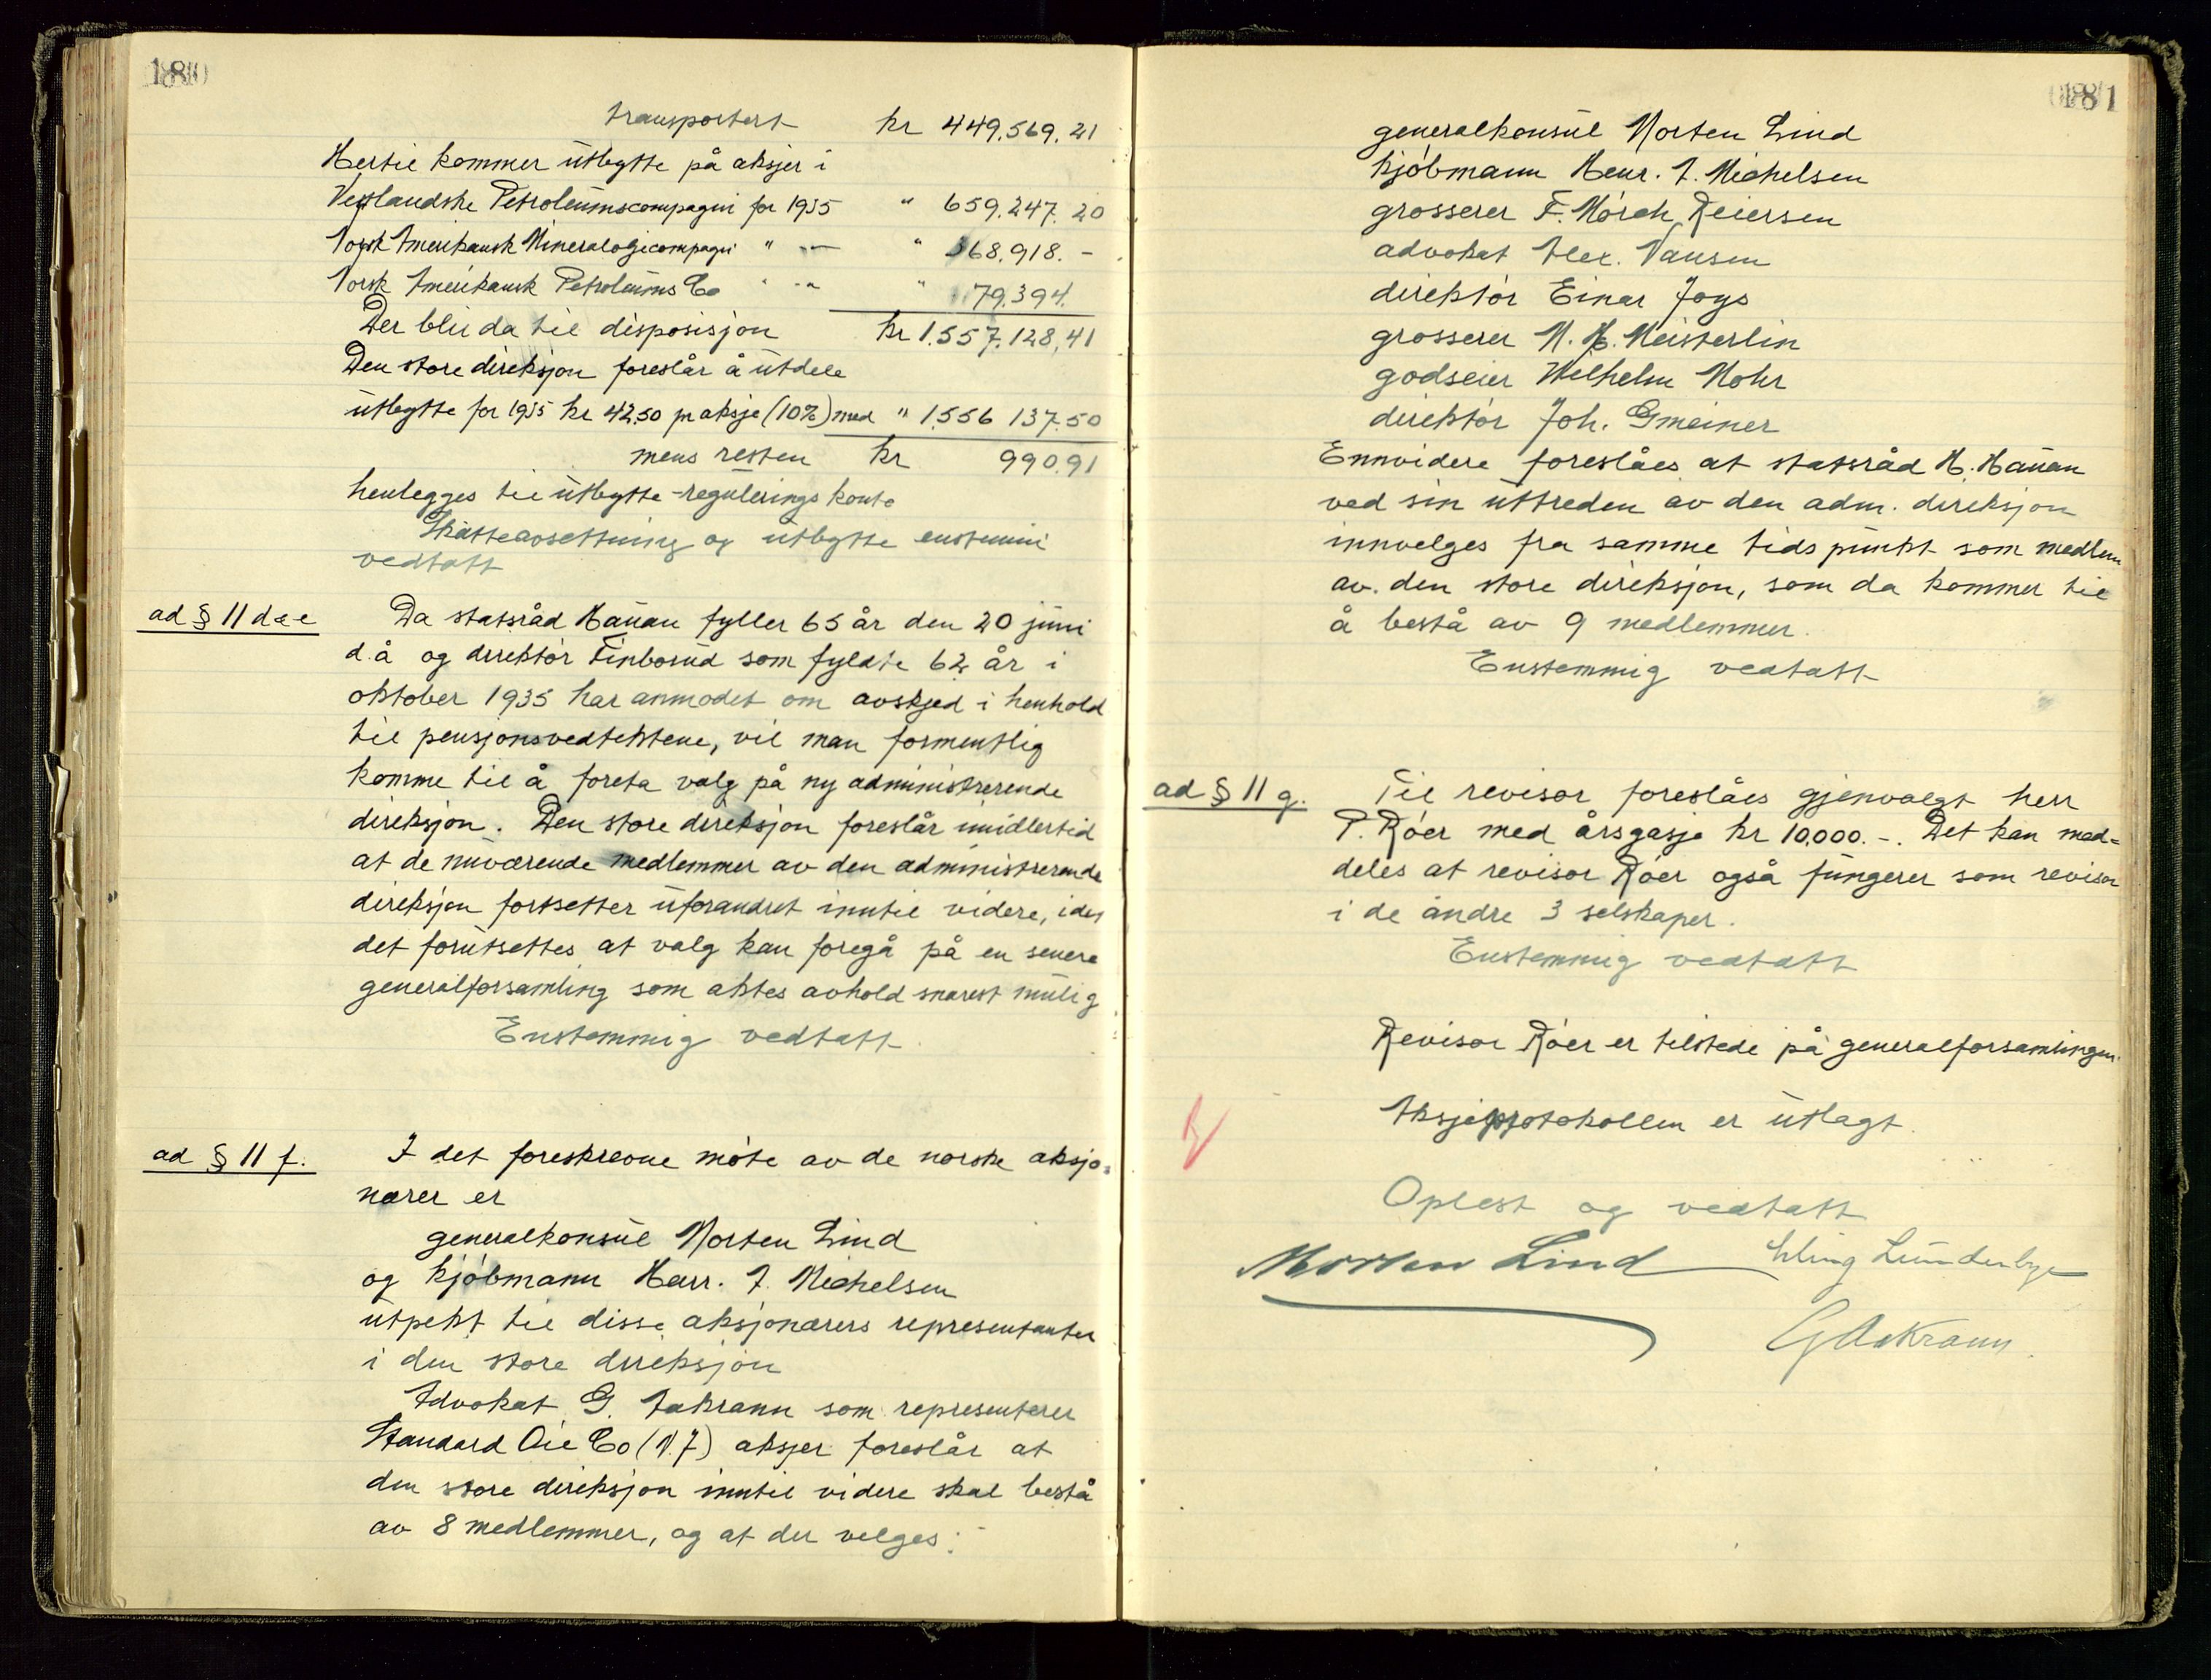 180
transportert kr 449.569.21
Hertil kommer utbytte på aksjer i
Vestlandske Petroleumscompagni for 1935 " 659.247.20
Norsk Amerikansk Mineraloljecompagni " — " 368.918.-
Norsk Amerikansk Petroleums Co " — " 79.394.
Der blir da til disposisjon kr 1.557.128,41
Den store direksjon foreslår å utdele
utbytte for 1935 kr 42.50 pr aksje (10%) med " 1.556 137.50
mens resten kr 990.91
henlegges til utbytte-regulerings konto
Skatteavsettning og utbytte enstemmi
vedtatt
ad § 11 d & e
Da statsråd Hauan fyller 65 år den 20 juni
d.å og direktör Finborud som fyldte 62 år i
oktober 1935 har anmodet om avskjed i henhold
til pensjonsvedtektene, vil man formentlig
komme til å foreta valg på ny administrerende
direksjon. Den store direksjon foreslår imidlertid
at de nuværende medlemmer av den administrerende
direksjon fortsetter uforandret inntil videre, idet
det forutsettes at valg kan foregå på en senere
generalforsamling som aktes avhold snarest mulig
Enstemmig vedtatt.
ad § 11 f.
I det foreskrevne möte av de norske aksjo=
nærer er
generalkonsul Morten Lind
og kjöbmann Henr. J. Michelsen
utpekt til disse aksjonærers representanter
i den store direksjon
Advokat G. Aakrann som representerer
Standard Oil Co (N.J) aksjer foreslår at
den store direksjon inntil videre skal bestå
av 8 medlemmer, og at der velges:
181
generalkonsul Morten Lind
kjöbmann Henr. J. Michelsen
grosserer F. Mörch Reiersen
advokat Alex. Nansen
direktör Einar Joys
grosserer M. H. Meisterlin
godseier Wilhelm Mohr
direktör Joh. Gmeiner
Ennvidere foreslåes at statsråd H. Hauan
ved sin uttreden av den adm. direksjon
innvelges fra samme tidspunkt som medlem
av den store direksjon, som da kommer til
å bestå av 9 medlemmer.
Enstemmig vedtatt
ad § 11 g.
Til revisor foreslåes gjenvalgt herr
P. Röer med årsgasje kr 10,000.-. Det kan med=
deles at revisor Röer også fungerer som revisor
i de andre 3 selskaper.
Enstemmig vedtatt
Revisor Röer er tilstede på generalforsamlingen.
Aksjeprotokollen er utlagt.
Oplest og vedtatt
Morten Lind Erling Lundenbye
G Aakrann.